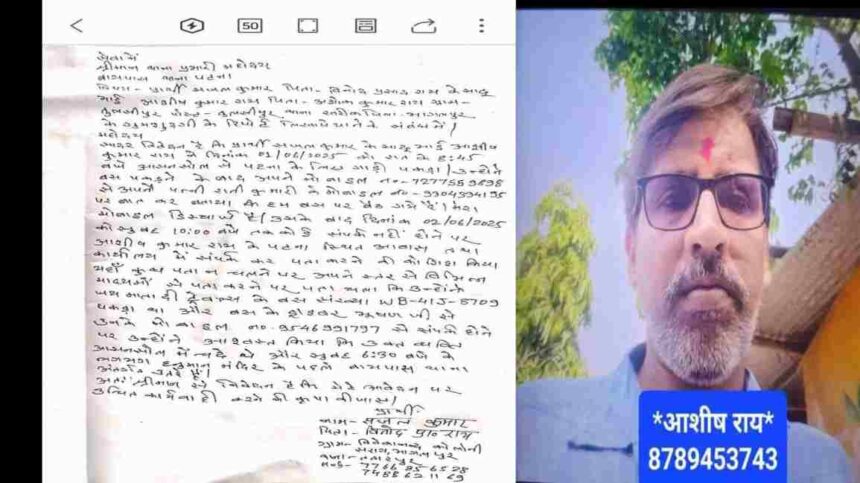 50
सेवा में
श्रीमान थाना प्रभारी महोदय
बायपास थाना पटना
विषय - प्रार्थी सजल कुमार पिता - विनोद प्रसाद राय के साढू
भाई आशीष कुमार राय पिता - अशोक कुमार राय ग्राम -
तुलसीपुर पोस्ट - तुलसीपुर थाना जिला - भागलपुर
के गुमशुदगी के रिपोर्ट लिखाये जाने के संबंध में।
महोदय
सादर निवेदन है कि प्रार्थी सजल कुमार के साढू भाई आशीष
कुमार राय ने दिनांक 01/06/2025 को रात के 8:45
बजे आसनसोल से पटना के लिए गाड़ी पकड़ा। उन्होंने
बस पकड़ने के बाद अपने मोबाइल no - 7277559698
से अपनी पत्नी रानी कुमारी के मोबाइल no - 9304334195
पर बात कर बताया कि हम बस पर बैठ गये हैं। मेरा
मोबाइल डिस्चार्ज है। उसके बाद दिनांक 02/06/2025
को सुबह 10:00 बजे तक कोई संपर्क नहीं होने पर
आशीष कुमार राय के पटना स्थित आवास तथा
कार्यालय में संपर्क कर पता करने की कोशिश किया
वहाँ कुछ पता न चलने पर अपने स्तर से विभिन्न
माध्यमों से पता करने पर पता चला कि उन्होंने
जय माता दी ट्रैवल्स के बस संख्या WB-41J-8709
पकड़ा था और बस के ड्राइवर भूषण जी से
उनके मोबाइल no. 9546991797 से संपर्क होने
पर उन्होंने आश्वस्त किया कि उक्त व्यक्ति
आसनसोल में चढ़े थे और सुबह 6:30 बजे के
लगभग हनुमान मंदिर के पहले बायपास थाना
अंतर्गत उतरे हैं।
अतः श्रीमान से निवेदन है कि मेरे आवेदन पर
उचित कार्यवाही करने की कृपा की जाए।
प्रार्थी
नाम - सजल कुमार
पिता - विनोद प्र० राय
ग्राम - विवेकानन्द कॉलोनी
सराय, भागलपुर
थाना - ततारपुर
7766856528
7488621169
*आशीष राय*
8789453743